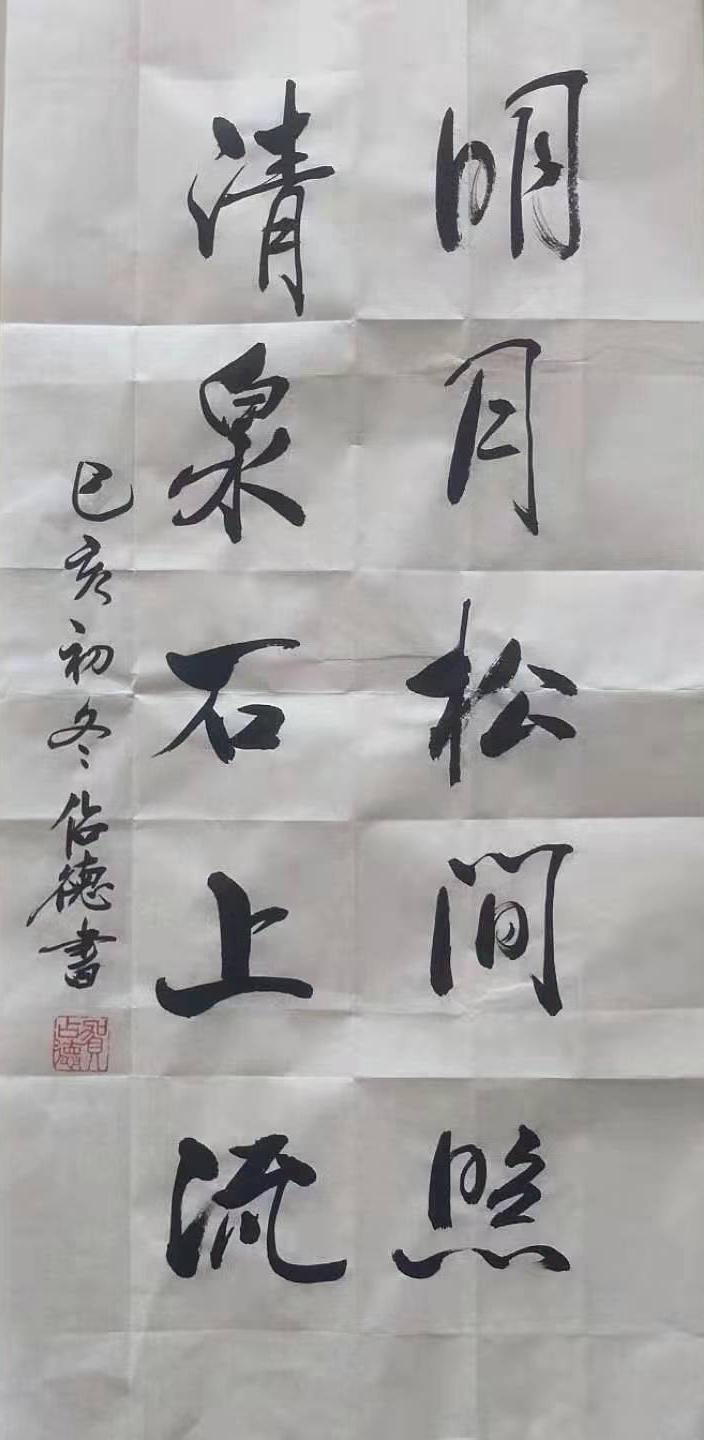 明月松间照
清泉石上流
己亥初冬佔德書
賀占德